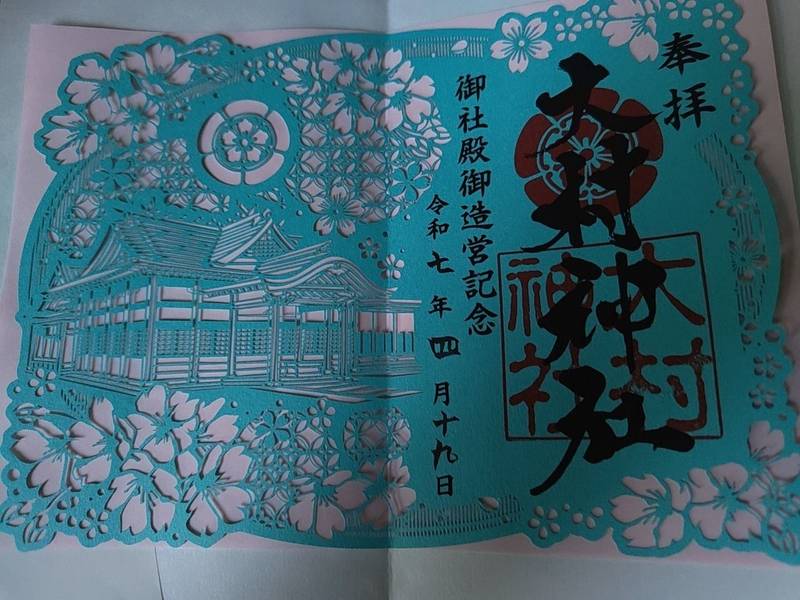 奉拝
大村神社
大村
神社
御社殿御造営記念
令和七年四月十九日